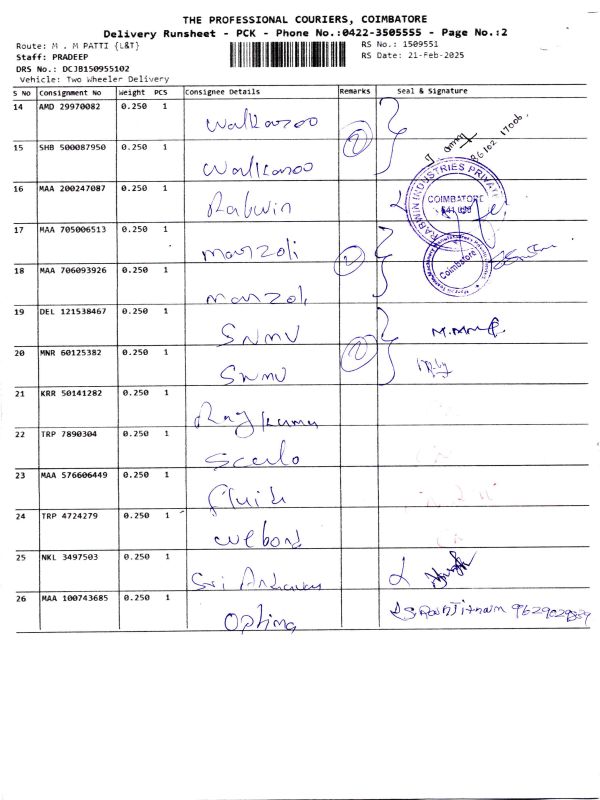 THE PROFESSIONAL COURIERS, COIMBATORE
Delivery Runsheet - PCK - Phone No.:0422-3505555 - Page No.:2
Route: M . M PATTI {L&T}
RS No.: 1509551
Staff: PRADEEP
RS Date: 21-Feb-2025
DRS No.: DCJB150955102
Vehicle: Two Wheeler Delivery
S No Consignment No Weight PCS Consignee Details Remarks Seal & Signature
14 AMD 29970082 0.250 1
Walkaroo
15 SHB 500087950 0.250 1
Walkaroo
2
16 MAA 200247087 0.250 1
Rabwin
RABWIN INDUSTRIES PRIVATE
COIMBATORE
17 MAA 705006513 0.250 1
Marzoli
2
Coimbatore
18 MAA 706093926 0.250 1
Marzoli
19 DEL 121538467 0.250 1
SNMV
20 MNR 60125382 0.250 1
SNMV
2
21 KRR 50141282 0.250 1
Rajkumar
22 TRP 7890304 0.250 1
23 MAA 576606449 0.250 1
24 TRP 4724279 0.250 1
25 NKL 3497503 0.250 1
Sri
26 MAA 100743685 0.250 1
Optima